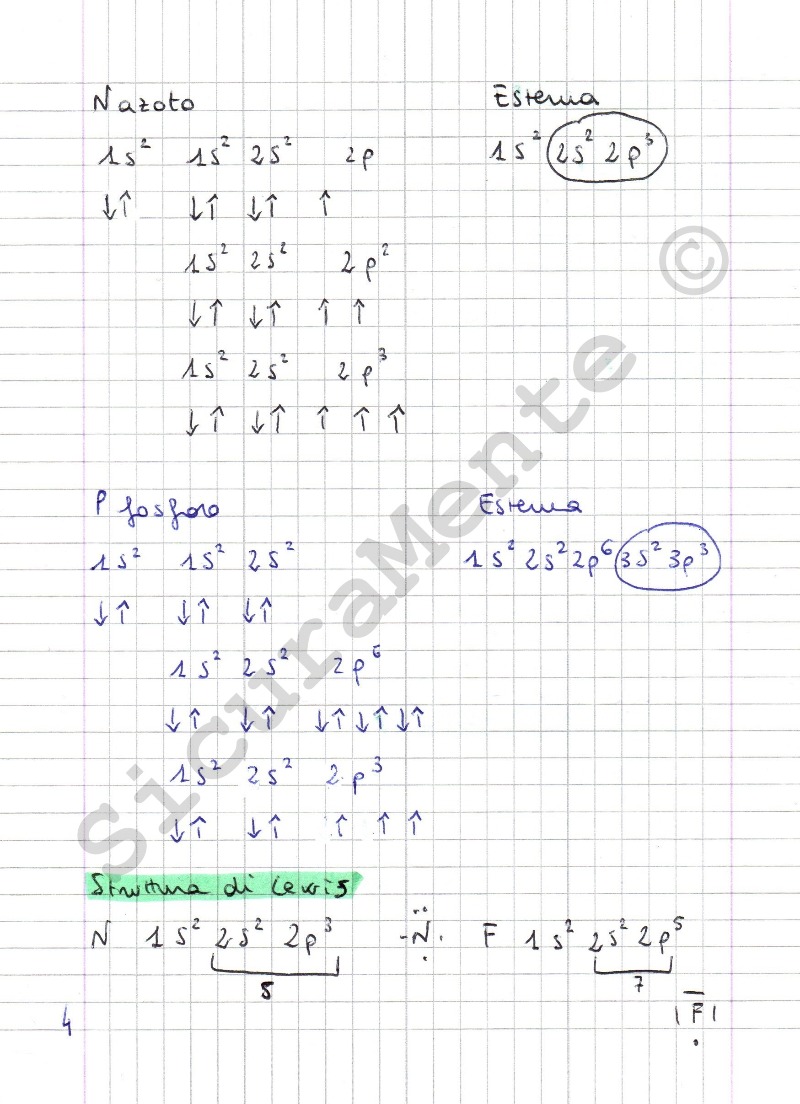 N azoto Esterna
1s² 1s² 2s² 2p 1s² 2s² 2p³
↓↑ ↓↑ ↓↑ ↑
1s² 2s² 2p²
↓↑ ↓↑ ↑ ↑
1s² 2s² 2p³
↓↑ ↓↑ ↑ ↑ ↑
P fosforo Esterna
1s² 1s² 2s² 1s² 2s² 2p⁶ 3s² 3p³
↓↑ ↓↑ ↓↑
1s² 2s² 2p⁶
↓↑ ↓↑ ↓↑ ↓↑ ↓↑
1s² 2s² 2p³
↓↑ ↓↑ ↑ ↑ ↑
Struttura di Lewis
N 1s² 2s² 2p³ N F 1s² 2s² 2p⁵
5 7
F
4
SicuraMente ©